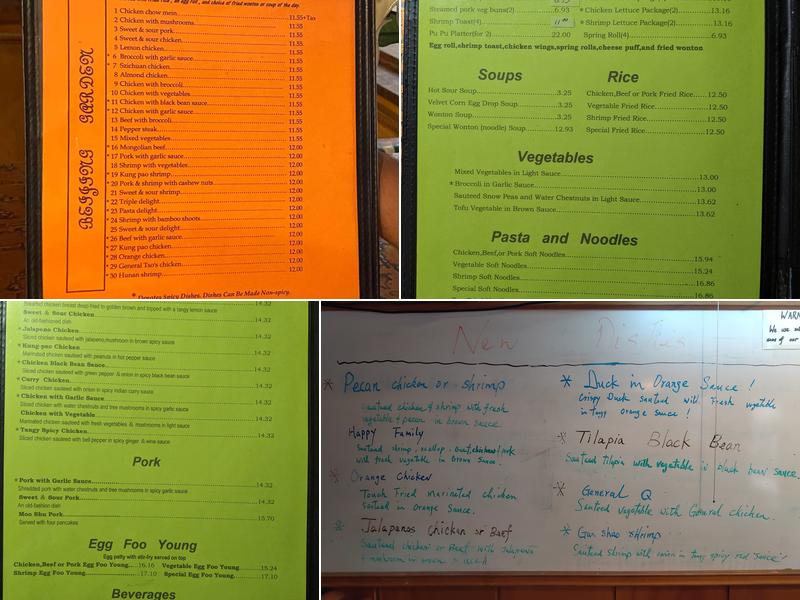 BEIJING GARDEN
1 Chicken chow mein 11.55+Tax
2 Chicken with mushrooms 11.55
3 Sweet & sour pork 11.55
4 Sweet & sour chicken 11.55
5 Lemon chicken 11.55
6 Broccoli with garlic sauce 11.55
* 7 Szichuan chicken 11.55
8 Almond chicken 11.55
9 Chicken with broccoli 11.55
10 Chicken with vegetables 11.55
* 11 Chicken with black bean sauce 11.55
* 12 Chicken with garlic sauce 11.55
13 Beef with broccoli 11.55
14 Pepper steak 11.55
15 Mixed vegetables 11.55
* 16 Mongolian beef 12.00
* 17 Pork with garlic sauce 12.00
18 Shrimp with vegetables 12.00
* 19 Kung pao shrimp 12.00
* 20 Pork & shrimp with cashew nuts 12.00
21 Sweet & sour shrimp 12.00
* 22 Triple delight 12.00
* 23 Pasta delight 12.00
* 24 Shrimp with bamboo shoots 12.00
25 Sweet & sour delight 12.00
* 26 Beef with garlic sauce 12.00
* 27 Kung pao chicken 12.00
* 28 Orange chicken 12.00
* 29 General Tso's chicken 12.00
* 30 Hunan shrimp 12.00
* Denotes Spicy Dishes. Dishes Can Be Made Non-spicy.
Steamed pork veg buns(2) 6.93
Shrimp Toast(4) 11.00
Pu Pu Platter(for 2) 22.00
* Chicken Lettuce Package(2) 13.16
* Shrimp Lettuce Package(2) 13.16
Spring Roll(4) 6.93
Egg roll,shrimp toast,chicken wings,spring rolls,cheese puff,and fried wonton
Soups
Hot Sour Soup 3.25
Velvet Corn Egg Drop Soup 3.25
Wonton Soup 3.25
Special Wonton (noodle) Soup 12.93
Rice
Chicken,Beef or Pork Fried Rice 12.50
Vegetable Fried Rice 12.50
Shrimp Fried Rice 12.50
Special Fried Rice 12.50
Vegetables
Mixed Vegetables in Light Sauce 13.00
* Broccoli in Garlic Sauce 13.00
Sauteed Snow Peas and Water Chestnuts in Light Sauce 13.62
Tofu Vegetable in Brown Sauce 13.62
Pasta and Noodles
Chicken,Beef,or Pork Soft Noodles 15.94
Vegetable Soft Noodles 15.24
Shrimp Soft Noodles 16.86
Special Soft Noodles 16.86
Breaded chicken breast deep-fried to golden brown and topped with a tangy lemon sauce
Sweet & Sour Chicken 14.32
An old-fashioned dish
* Jalapeno Chicken 14.32
Sliced chicken sauteed with jalapeno,mushroom in brown spicy sauce
* Kung-pao Chicken 14.32
Marinated chicken sauteed with peanuts in hot pepper sauce
* Chicken Black Bean Sauce 14.32
Sliced chicken sauteed with green pepper & onion in spicy black bean sauce
* Curry Chicken 14.32
Sliced chicken sauteed with onion in spicy indian curry sauce
* Chicken with Garlic Sauce 14.32
Sliced chicken sauteed with water chestnuts and tree mushrooms in spicy garlic sauce
Chicken with Vegetable 14.32
Marinated chicken sauteed with fresh vegetables & mushrooms in light sauce
* Tangy Spicy Chicken 14.32
Sliced chicken sauteed with bell pepper in spicy ginger & wine sauce
Pork
* Pork with Garlic Sauce 14.32
Shredded pork with water chestnuts and tree mushrooms in spicy garlic sauce
Sweet & Sour Pork 14.32
An old-fashion dish
Moo Shu Pork 15.70
Served with four pancakes
Egg Foo Young
Egg patty with stir-fry served on top
Chicken,Beef or Pork Egg Foo Young 16.16 Vegetable Egg Foo Young 15.24
Shrimp Egg Foo Young 17.10 Special Egg Foo Young 17.10
Beverages
New Dishes
* Pecan chicken or shrimp
sauteed chicken & shrimp with fresh
vegetable & pecan in brown sauce
Happy Family
Sauteed shrimp, scallop, beef, chicken/pork
with fresh vegetable in Brown Sauce.
* Orange Chicken
Touch Fried marinated chicken
Sauteed in Orange Sauce.
* Jalapanos Chicken or Beef
Sauteed chicken or Beef with Jalapano
* Duck in Orange Sauce !
Crispy Duck sauteed with Fresh vegetable
in Tangy orange sauce !
* Tilapia Black Bean
Sauteed Tilapia with vegetable in black bean sauce.
* General Q
Sauteed Vegetable with General chicken.
* Gan shao shrimp
Sauteed shrimp with onion in tangy spicy red sauce
WARN
We use